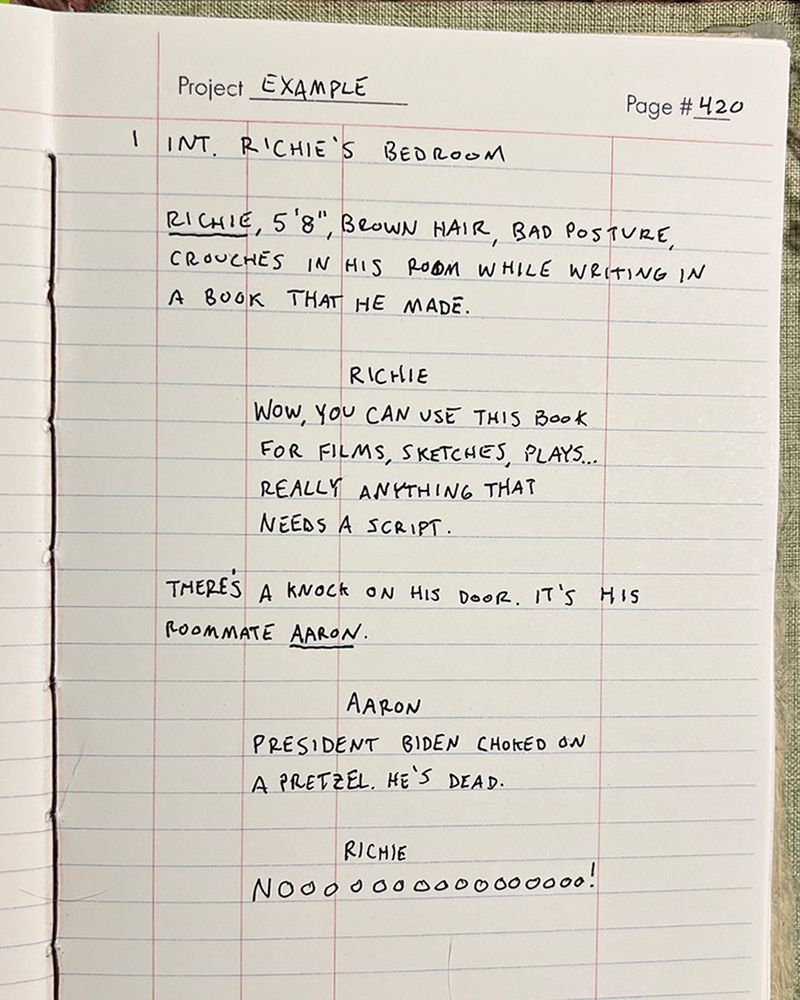 Project EXAMPLE
Page # 420
1 INT. RICHIE'S BEDROOM
RICHIE, 5'8", BROWN HAIR, BAD POSTURE,
CROUCHES IN HIS ROOM WHILE WRITING IN
A BOOK THAT HE MADE.
RICHIE
WOW, YOU CAN USE THIS BOOK
FOR FILMS, SKETCHES, PLAYS...
REALLY ANYTHING THAT
NEEDS A SCRIPT.
THERE'S A KNOCK ON HIS DOOR. IT'S HIS
ROOMMATE AARON.
AARON
PRESIDENT BIDEN CHOKED ON
A PRETZEL. HE'S DEAD.
RICHIE
NOOOOOOOOOOOOOOOO!